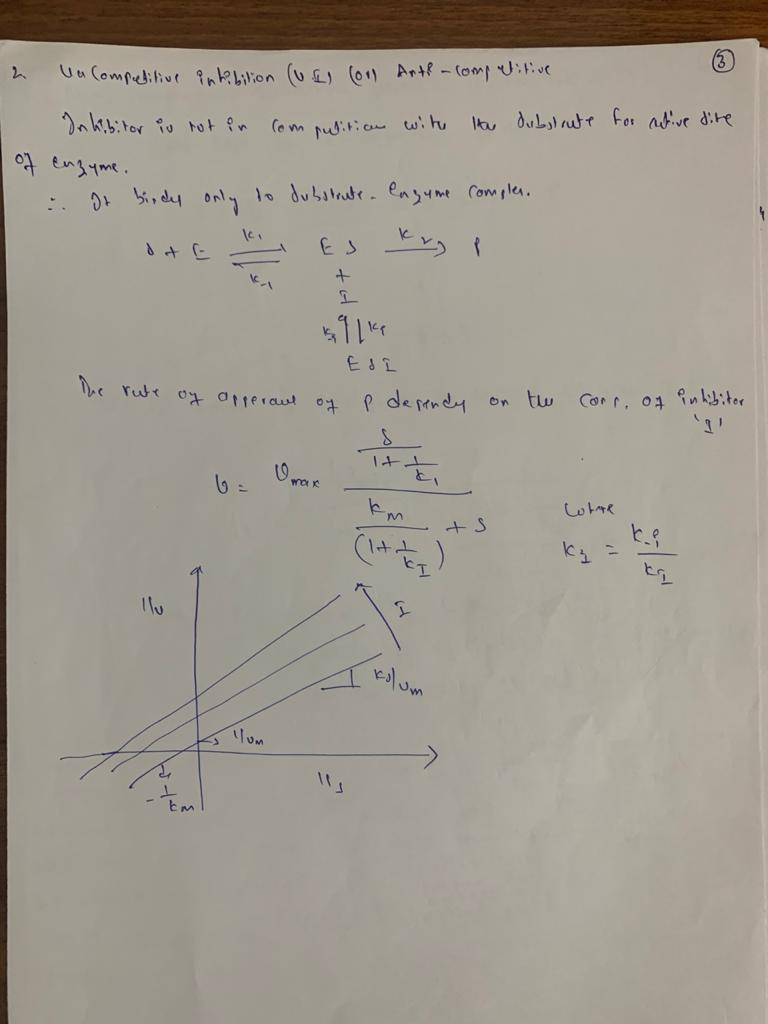 ③
2 UnCompetitive inhibition (UI) (or) Anti-competitive
Inhibitor is not in competition with the substrate for active site
of enzyme.
∴ It binds only to substrate-Enzyme complex.
S + E ⇌ ES → P
k₁ k₋₁ k₂
+
I
kᵢ
ESI
The rate of apperance of P depends on the conc. of inhibitor
'I'
υ = υmax
S
1 + I/kI
km
(1 + I/kI) + S
where
kI = k-i / ki
1/υ
I
ks/υm
1/υm
1/s
-1/km